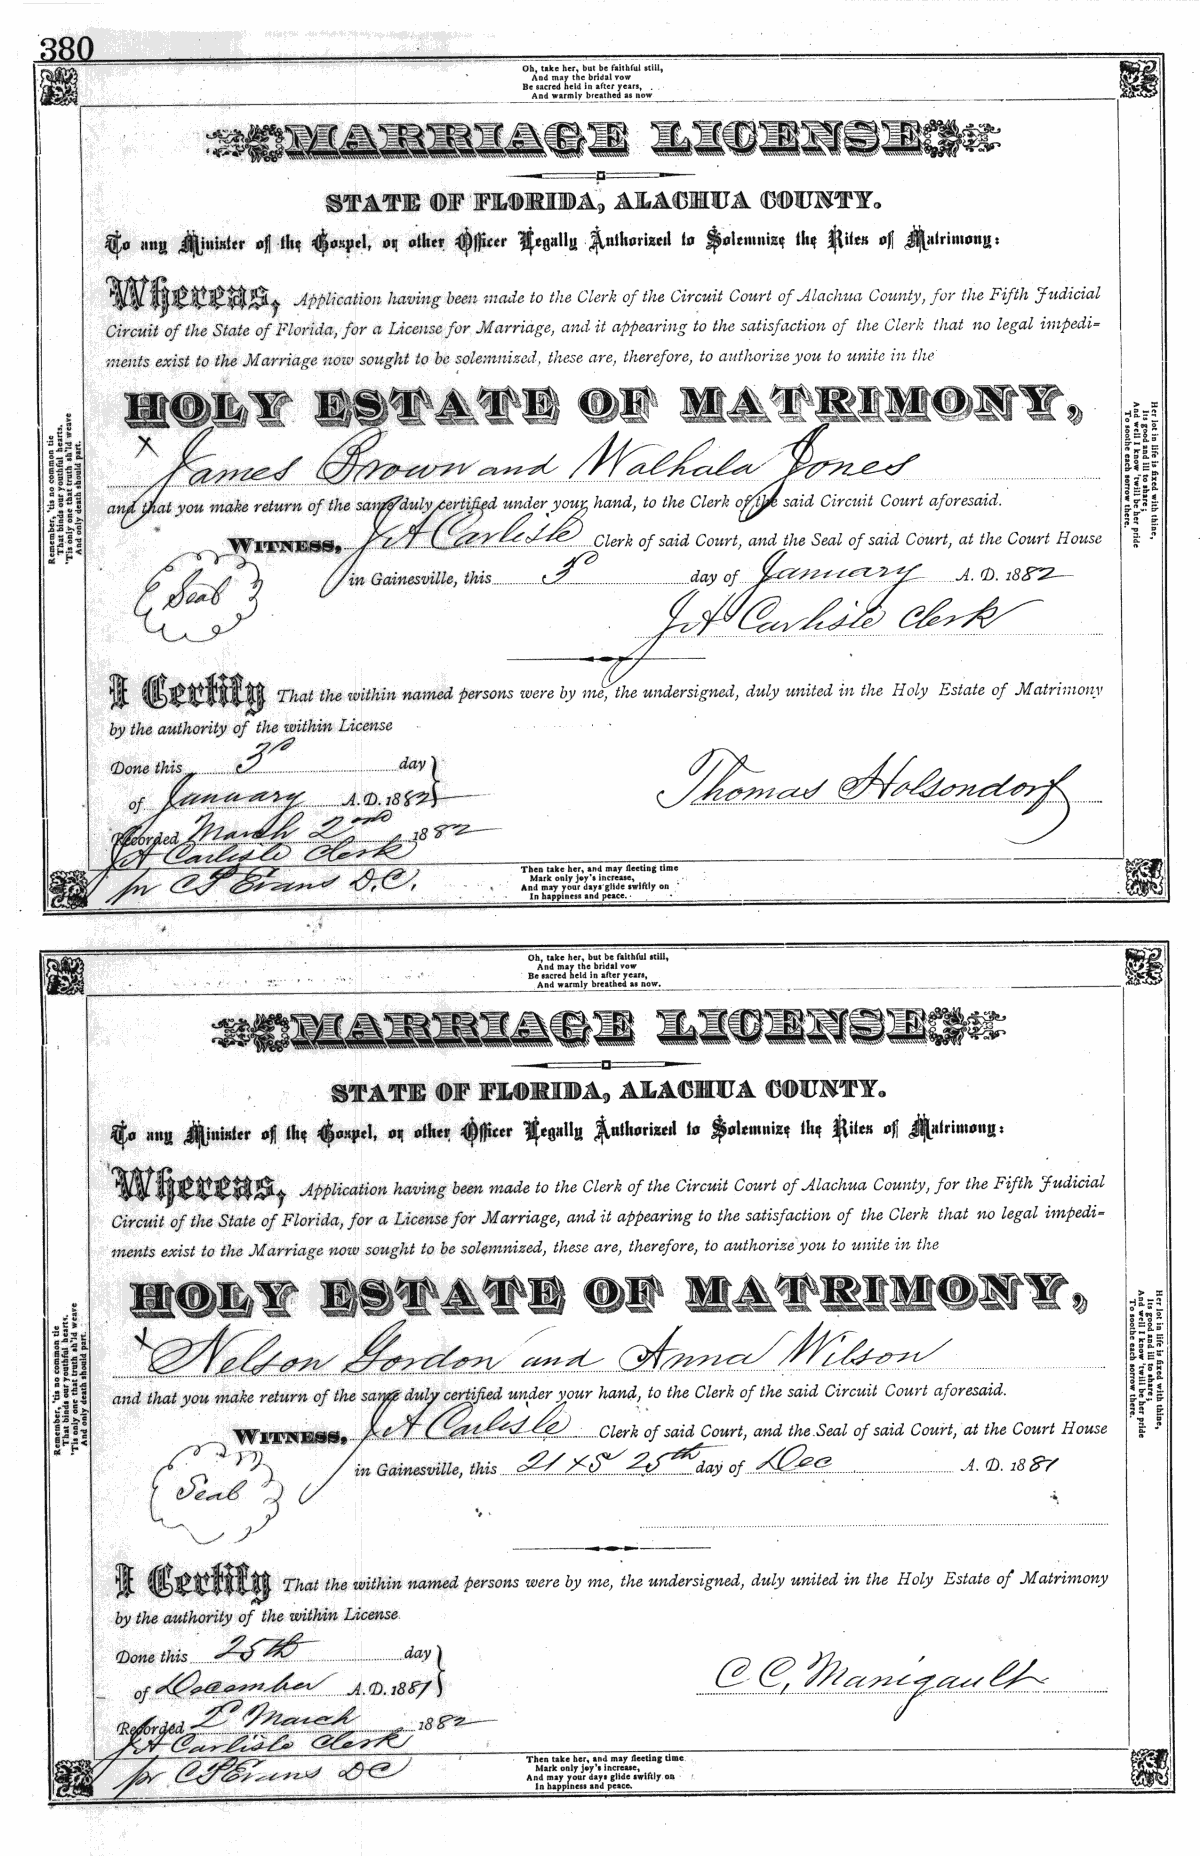 380
Oh, take her, but be faithful still,
And may the bridal vow
Be sacred held in after years,
And warmly breathed as now
MARRIAGE LICENSE
STATE OF FLORIDA, ALACHUA COUNTY.
To any Minister of the Gospel, or other Officer Legally Authorized to Solemnize the Rites of Matrimony:
Whereas, Application having been made to the Clerk of the Circuit Court of Alachua County, for the Fifth Judicial
Circuit of the State of Florida, for a License for Marriage, and it appearing to the satisfaction of the Clerk that no legal impedi=
ments exist to the Marriage now sought to be solemnized, these are, therefore, to authorize you to unite in the
HOLY ESTATE OF MATRIMONY,
x James Brown and Walhala Jones
and that you make return of the same duly certified under your hand, to the Clerk of the said Circuit Court aforesaid.
WITNESS, J A Carlisle Clerk of said Court, and the Seal of said Court, at the Court House
Seal
in Gainesville, this 3d day of January A. D. 1882
J A Carlisle Clerk
I Certify That the within named persons were by me, the undersigned, duly united in the Holy Estate of Matrimony
by the authority of the within License
Done this 3d day
of January A.D. 1882
Thomas Holsondorf
Recorded March 2nd 1882
J A Carlisle Clerk
pr C P Evans D.C.
Remember, 'tis no common tie
That binds our youthful hearts,
'Tis only one that truth sh'ld weave
And only death should part.
Her lot in life is fixed with thine,
Its good and ill to share;
And well I know 'twill be her pride
To soothe each sorrow there.
Then take her, and may fleeting time
Mark only joy's increase,
And may your days glide swiftly on
In happiness and peace.
Oh, take her, but be faithful still,
And may the bridal vow
Be sacred held in after years,
And warmly breathed as now.
MARRIAGE LICENSE
STATE OF FLORIDA, ALACHUA COUNTY.
To any Minister of the Gospel, or other Officer Legally Authorized to Solemnize the Rites of Matrimony:
Whereas, Application having been made to the Clerk of the Circuit Court of Alachua County, for the Fifth Judicial
Circuit of the State of Florida, for a License for Marriage, and it appearing to the satisfaction of the Clerk that no legal impedi=
ments exist to the Marriage now sought to be solemnized, these are, therefore, to authorize you to unite in the
HOLY ESTATE OF MATRIMONY,
x Nelson Gordon and Anna Wilson
and that you make return of the same duly certified under your hand, to the Clerk of the said Circuit Court aforesaid.
WITNESS, J A Carlisle Clerk of said Court, and the Seal of said Court, at the Court House
Seal
in Gainesville, this 21 25th day of Dec A. D. 1881
I Certify That the within named persons were by me, the undersigned, duly united in the Holy Estate of Matrimony
by the authority of the within License
Done this 25th day
of December A.D. 1881
C C, Manigault
Recorded 2d March 1882
J A Carlisle Clerk
pr C P Evans D C
Remember, 'tis no common tie
That binds our youthful hearts,
'Tis only one that truth sh'ld weave
And only death should part.
Her lot in life is fixed with thine,
Its good and ill to share;
And well I know 'twill be her pride
To soothe each sorrow there.
Then take her, and may fleeting time
Mark only joy's increase,
And may your days glide swiftly on
In happiness and peace.